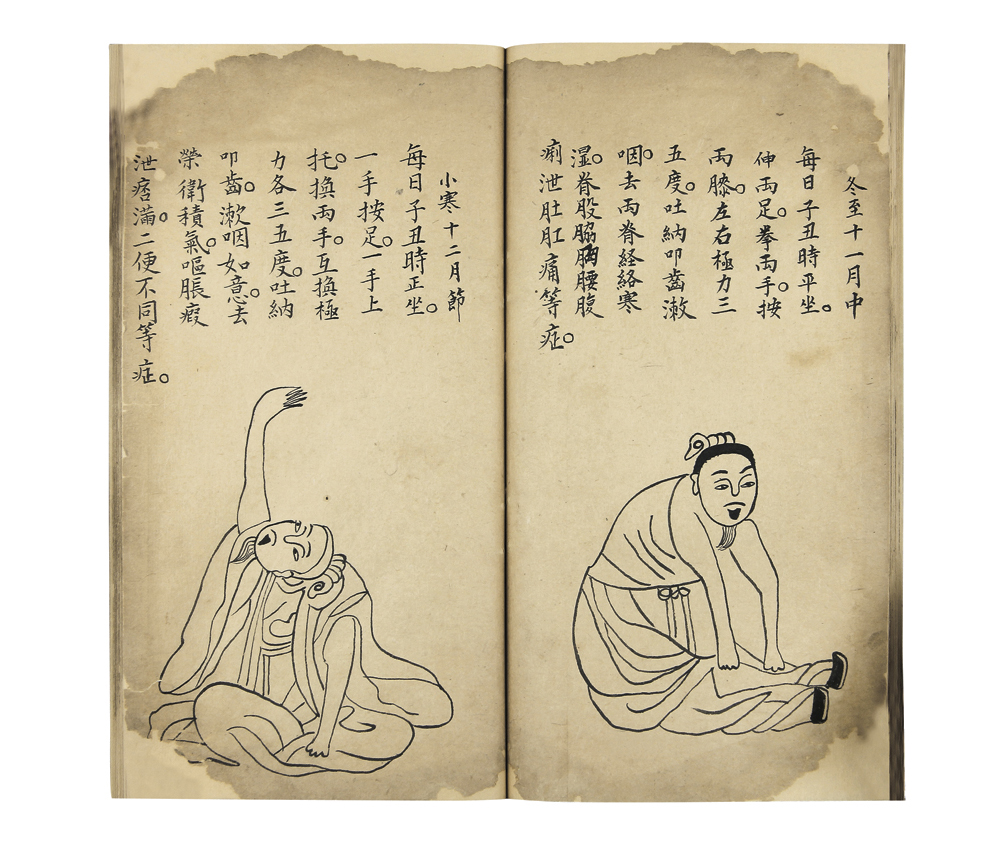 冬至十一月中
每日子丑時平坐。
伸兩足。拳兩手。按
兩膝。左右極力三
五度。吐納叩齒漱
咽。去兩脊経絡寒
湿。脊股脇腰腹
痢泄肚肛痛等症。
小寒十二月節
每日子丑時正坐。
一手按足。一手上
托。換兩手。互換極
力各三五度。吐納
叩齒。漱咽如意。去
榮衛積氣。嘔脹瘕
泄痞滿。二便不同等症。